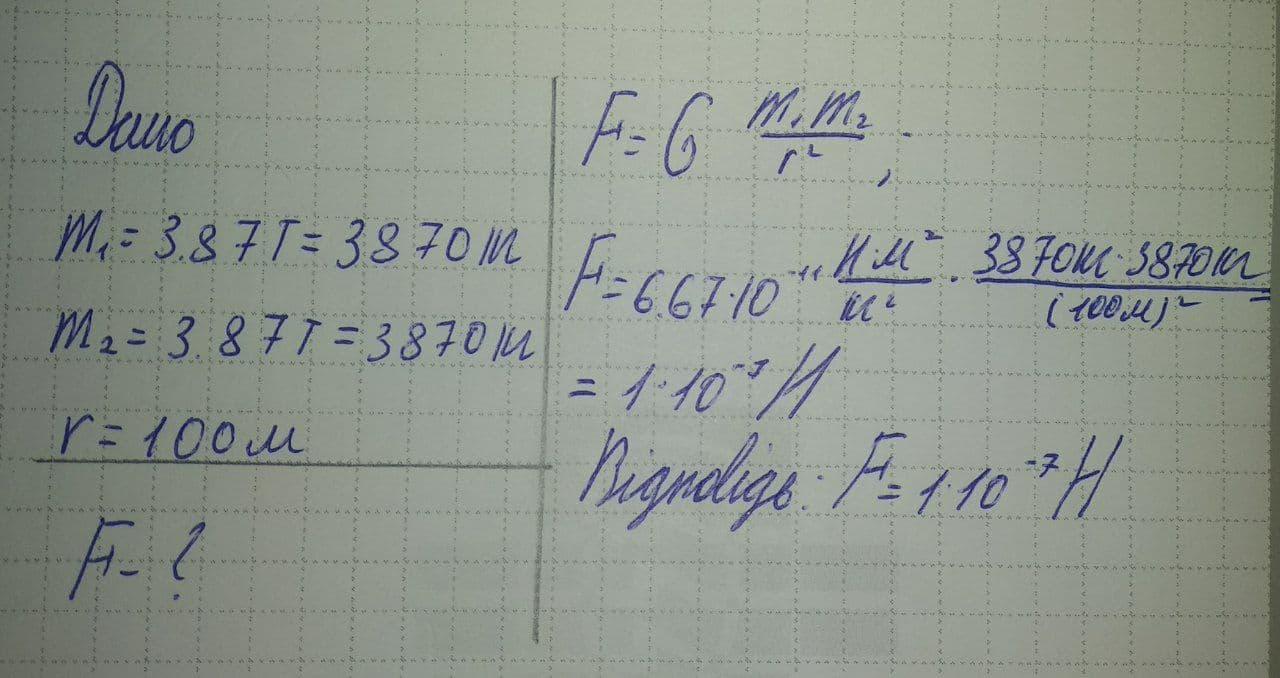 Дано
m₁ = 3.87т = 3870 т
m₂ = 3.87т = 3870 т
r = 100м
F - ?
F = G m₁ m₂ / r² ;
F = 6.67·10⁻¹¹ Н·м² / т² · 3870т · 3870т / (100м)² =
= 1·10⁻⁷ Н
Відповідь: F = 1·10⁻⁷ Н